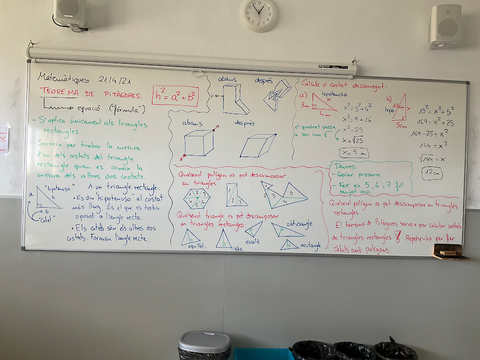 Matemàtiques 21/4/21
TEOREMA DE PITÀGORES
equació ("fórmula")
h² = a² + b²
- S'aplica únicament als triangles
rectangles
Serveix per trobar la mesura
d'un dels costats del triangle
rectangle quan es coneix la
mesura dels altres dos costats.
"hipotenusa"
a
b
A un triangle rectangle:
• Es diu hipotenusa al costat
més llarg. És el que es troba
oposat a l'angle recte.
• Els catets són els altres dos
costats. Formen l'angle recte.
abans
després
abans
després
Qualsevol polígon es pot descomposar
en triangles.
Qualsevol triangle es pot descomposar
en triangles rectangles
escalè
obtusangle
rectangle
Calcula el costat desconegut.
a)
hipotenusa
3m
4m
x² = 3² + 4²
x² = 9 + 16
x² = 25
x = √25
x = 5 m
b)
13cm
5cm
13² = x² + 5²
169 = x² + 25
169 - 25 = x²
144 = x²
√144 = x
12 cm
Deures:
- Copiar pissarra
- Fer ex 5, 6, 7
Qualsevol polígon es pot descomposar en triangles
rectangles.
El teorema de Pitàgores serveix per calcular costats
de triangles rectangles
càlculs amb polígons.